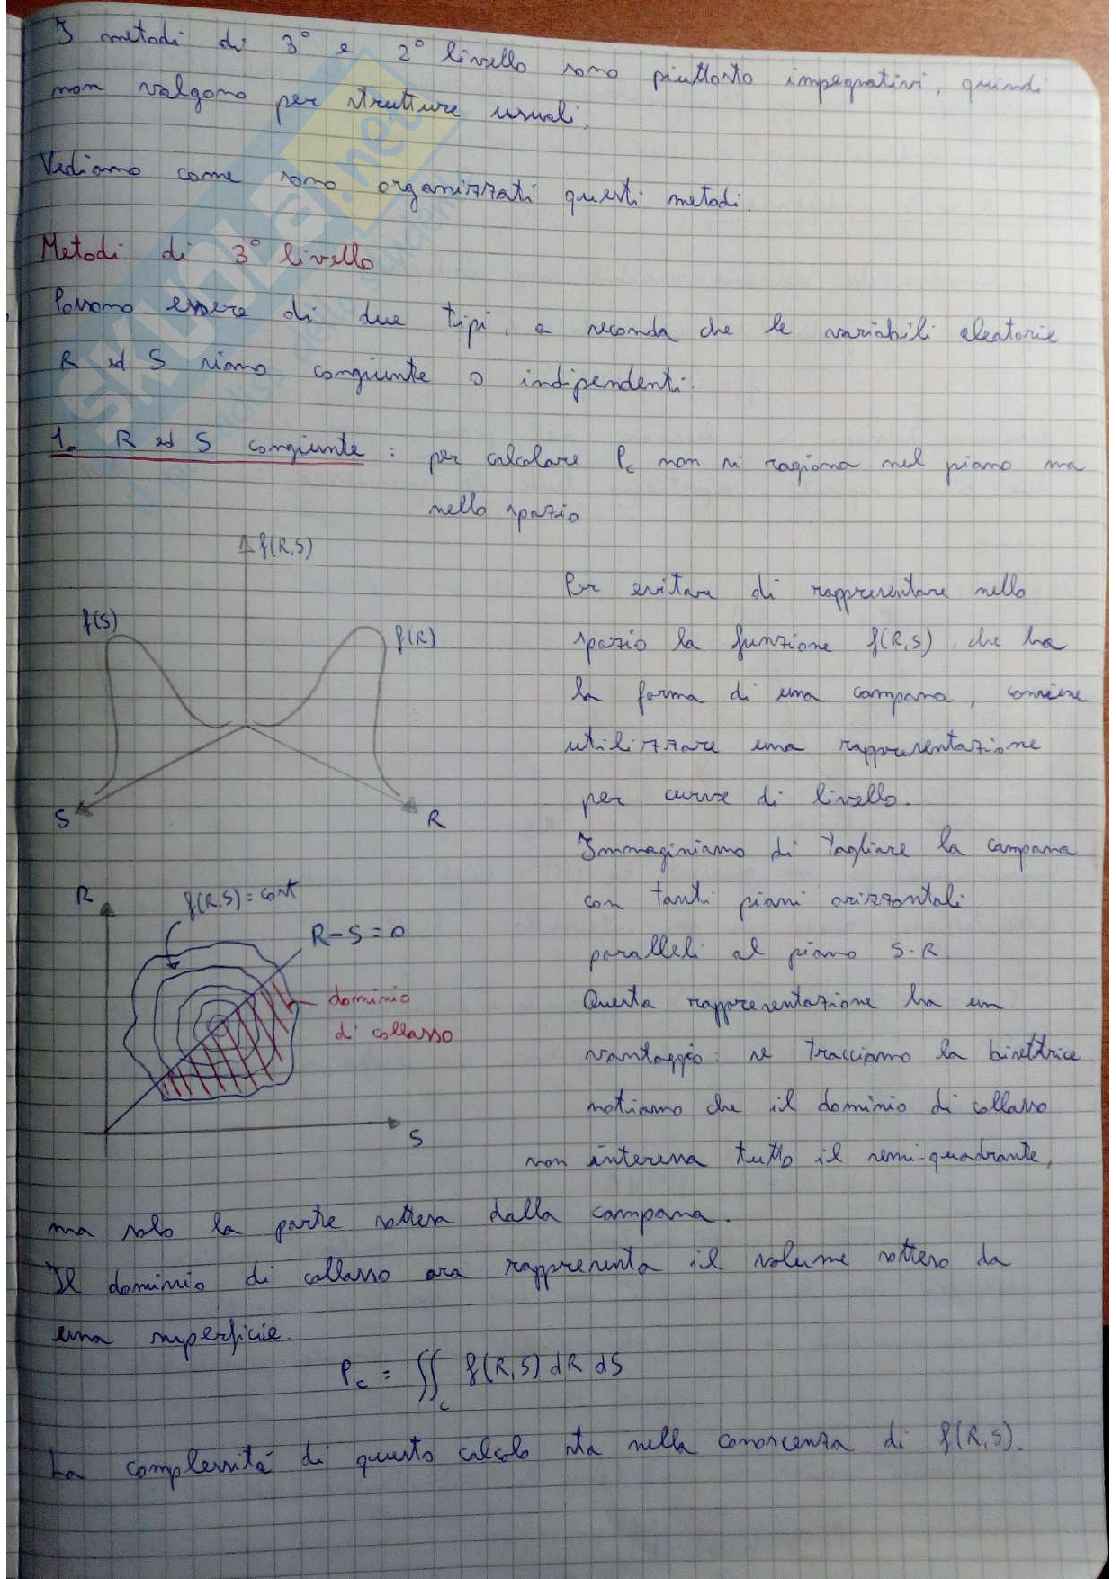 I metodi di 3° e 2° livello sono piuttosto impegnativi, quindi
non valgono per strutture usuali.
Vediamo come sono organizzati questi metodi.
Metodi di 3° livello
Possono essere di due tipi, a seconda che le variabili aleatorie
R ed S siano congiunte o indipendenti.
1. R ed S congiunte : per calcolare Pc non si ragiona nel piano ma
nello spazio
f(R,S)
f(S)
f(R)
S
R
Per evitare di rappresentare nello
spazio la funzione f(R,S) che ha
la forma di una campana, conviene
utilizzare una rappresentazione
per curve di livello.
Immaginiamo di tagliare la campana
con tanti piani orizzontali
paralleli al piano S-R
R
f(R,S) = cost
R-S=0
dominio
di collasso
S
Questa rappresentazione ha un
vantaggio: se tracciamo la bisettrice
notiamo che il dominio di collasso
non interessa tutto il semi-quadrante,
ma solo la parte sottesa dalla campana.
Il dominio di collasso ora rappresenta il volume sotteso da
una superficie.
Pc = ∬c f(R,S) dR dS
La complessità di questo calcolo sta nella conoscenza di f(R,S).
SKUOLA.net